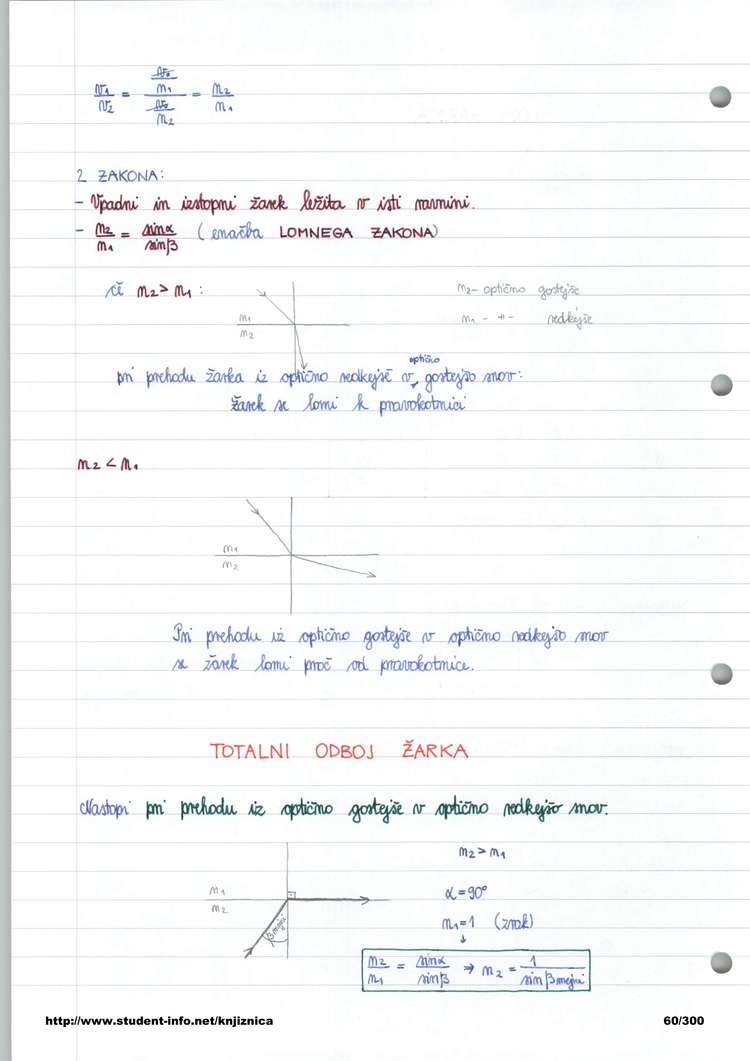 v₁/v₂ = (v₀/n₁)/(v₀/n₂) = n₂/n₁
2 ZAKONA:
- Vpadni in izstopni žarek ležita v isti ravnini.
- n₂/n₁ = sinα/sinβ (enačba LOMNEGA ZAKONA)
če n₂ > n₁:
n₂ - optično gostejše
n₁ - -||- redkejše
n₁
n₂
pri prehodu žarka iz optično redkejše v optično gostejšo snov:
žarek se lomi k pravokotnici
n₂ < n₁
n₁
n₂
Pri prehodu iz optično gostejše v optično redkejšo snov
se žarek lomi proč od pravokotnice.
TOTALNI ODBOJ ŽARKA
Nastopi pri prehodu iz optično gostejše v optično redkejšo snov.
n₂ > n₁
n₁
n₂
β mejni
α = 90°
n₁ = 1 (zrak)
↓
n₂/n₁ = sinα/sinβ ⇒ n₂ = 1/sin β mejni
http://www.student-info.net/knjiznica 60/300